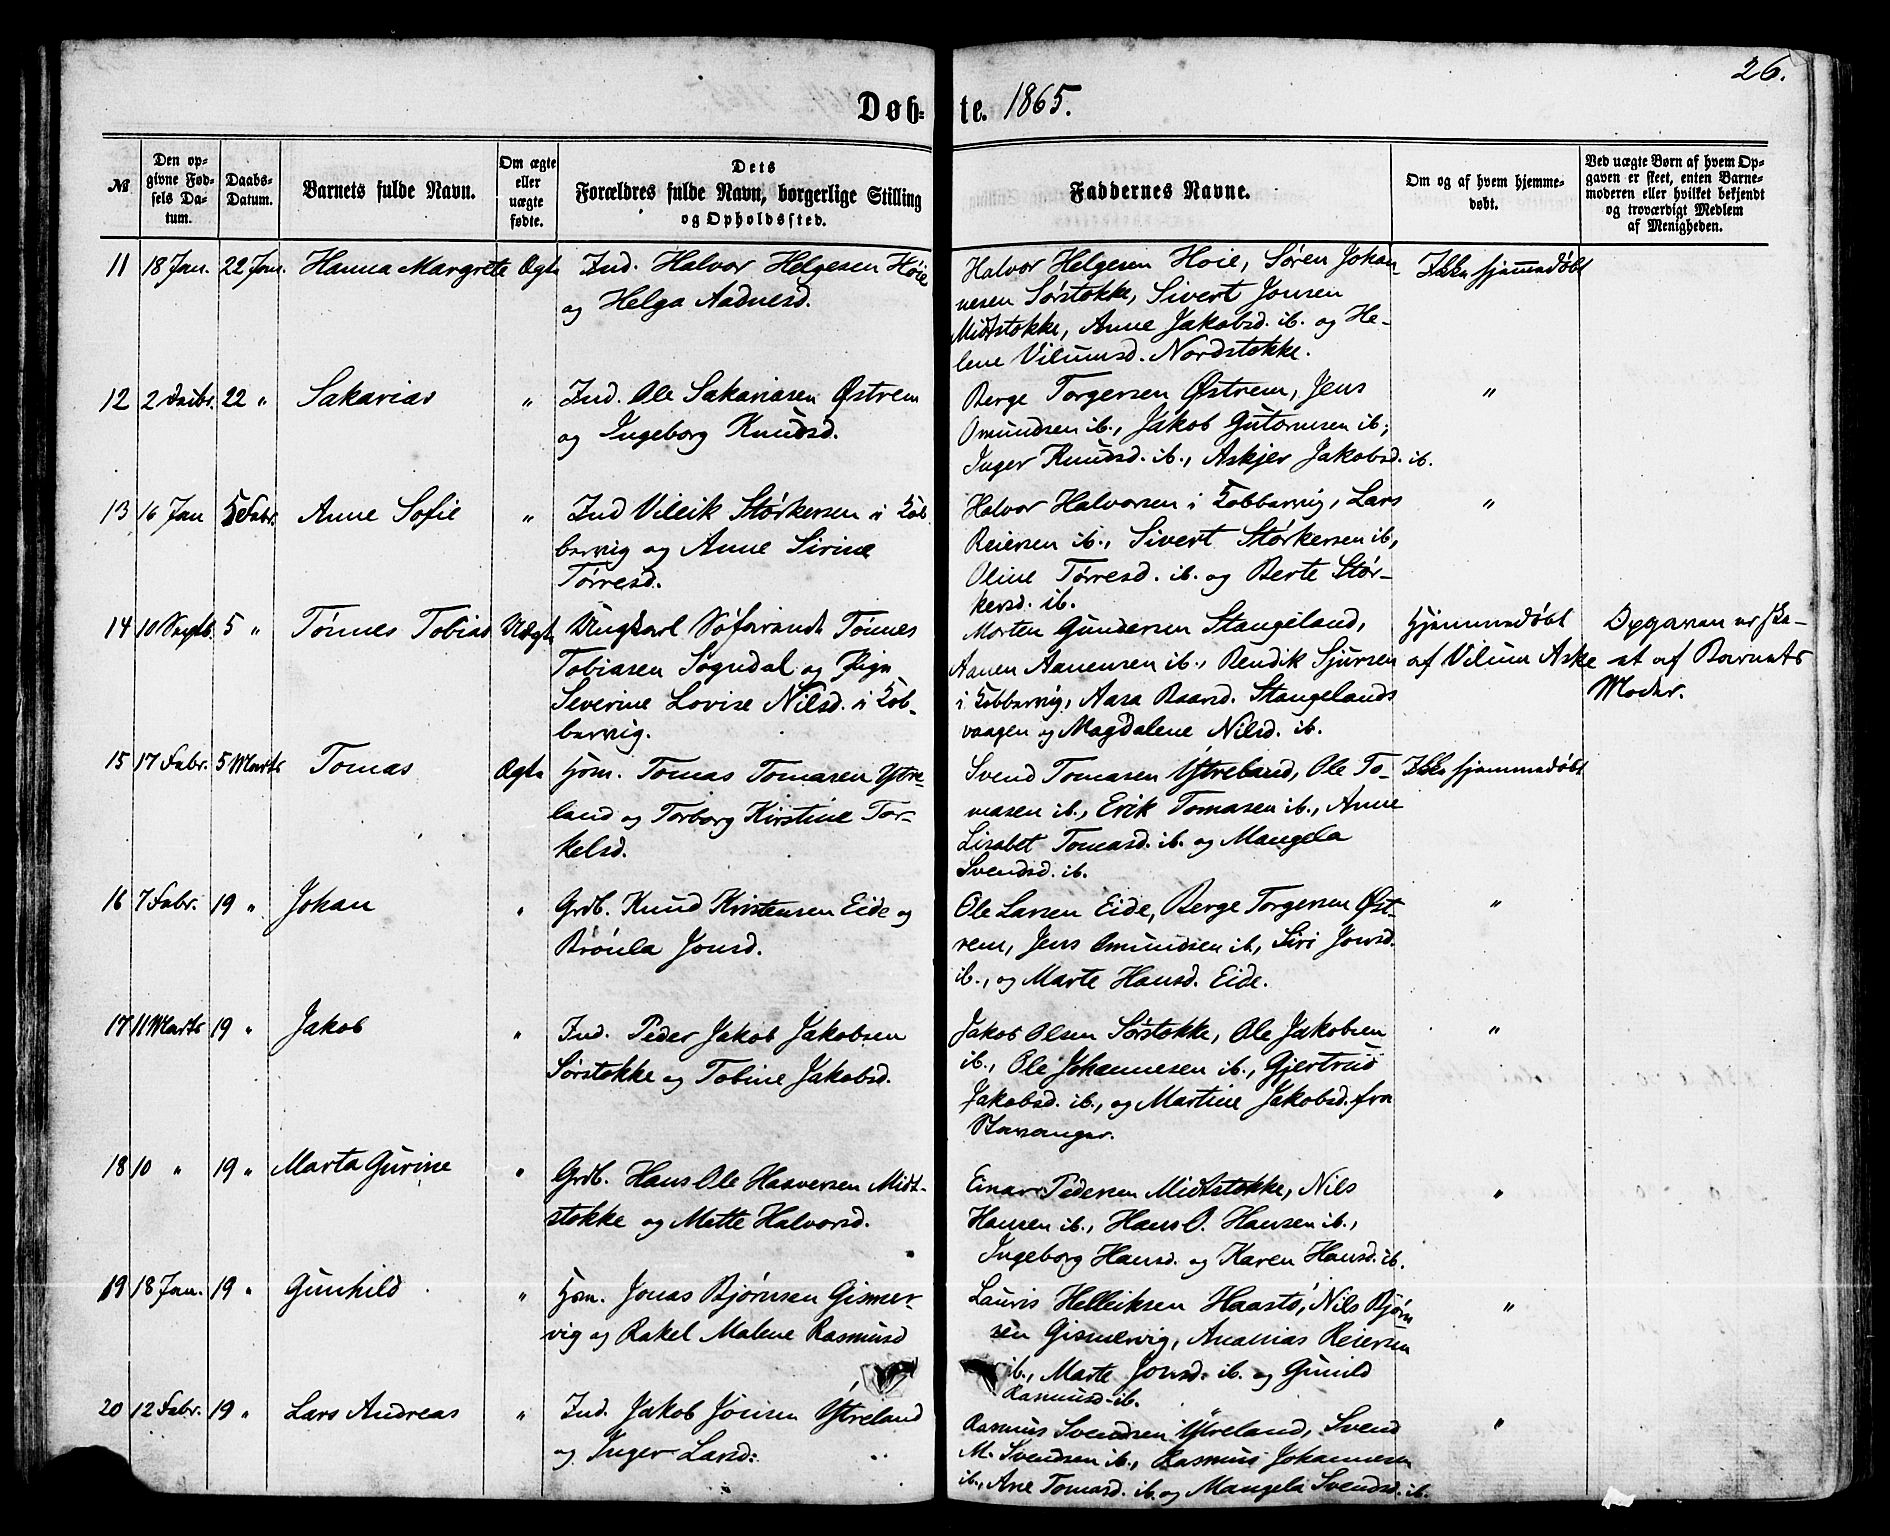 26.
Døbte. 1865.
№
Den op-
givne Fød-
sels Da-
tum.
Daabs-
Datum.
Barnets fulde Navn.
Om ægte
eller
uægte
fødte.
Dets
Forældres fulde Navn, borgerlige Stilling
og Opholdssted.
Faddernes Navne.
Om og af hvem hjemme-
døbt.
Ved uægte Børn af hvem Op-
gaven er skeet, enten Barne-
moderen eller hvilket bekjendt
og troværdigt Medlem
af Menigheden.
11 18 Jan. 22 Jan. Hanna Margrete Ægte
Ind. Halvor Helgesen Høie
og Helga Aadnesd.
Halvor Helgesen Hoie, Søren Johan-
nesen Sørstokke, Sivert Jonsen
Midtstokke, Anne Jakobsd. ib. og He-
lene Vilumsd. Nordstokke.
Ikke hjemmedøbt
12 2 Decbr. 22 " Sakarias "
Ind. Ole Sakariasen Østrem
og Ingeborg Knudsd.
Berge Torgersen Østrem, Jens
Omundsen ib., Jakob Gutormsen ib.,
Inger Knudsd. ib., Askjer Jakobsd. ib.
"
13 16 Jan 5 Febr. Anne Sofie "
Ind Vileik Størkersen i Kob-
bervig og Anne Sirine
Tørresd.
Halvor Halvorsen i Kobbervig, Lars
Reiersen ib., Sivert Størkersen ib,
Oline Tørresd. ib. og Berte Stør-
kersd. ib.
"
14 10 Septb. 5 " Tønnes Tobias Uægte
Ungkarl Søfarende Tønnes
Tobiasen Sogndal og Pige
Severine Lovise Nilsd. i Kob-
bervig.
Morten Gundersen Stangeland,
Aanen Aanensen ib., Bendik Sjursen
i Kobbervig, Aasa Baarsd. Stangelands
vaagen og Magdalene Nilsd. ib.
Hjemmedøbt
af Vilum Aske
Opgaven er ske-
et af Barnets
Moder.
15 17 Febr. 5 Marts Tomas Ægte
Hsm. Tomas Tomasen Ytre-
land og Torborg Kirstine Tor-
kelsd.
Svend Tomasen Ytreland, Ole To-
masen ib., Erik Tomasen ib., Anne
Lisabet Tomasd. ib. og Mangela
Svendsd. ib.
Ikke hjemmedøbt
16 7 Febr. 19 " Johan "
Grdb. Knud Kristensen Eide og
Brønla Jonsd.
Ole Larsen Eide, Berge Torgersen Øst-
rem, Jens Omundsen ib, Siri Jonsd.
ib., og Marte Hansd. Eide.
"
17 11 Marts 19 " Jakob "
Ind. Peder Jakob Jakobsen
Sørstokke og Tobine Jakobsd.
Jakob Olsen Sørstokke, Ole Jakobsen
ib., Ole Johannesen ib., Gjertrud
Jakobsd. ib., og Martine Jakobsd. fra
Stavanger.
"
18 10 " 19 " Marta Gurine "
Grdb. Hans Ole Haaversen Midt-
stokke og Mette Halvorsd.
Einar Pedersen Midtstokke, Nils
Hansen ib., Hans O. Hansen ib.,
Ingeborg Hansd. og Karen Hansd. ib.
"
19 18 Jan. 19 " Gunhild "
Hsm. Jonas Bjørnsen Gismer-
vig og Rakel Malene Rasmusd
Lauris Helleiksen Haastø, Nils Bjørn
sen Gismervig, Ananias Reiersen
ib., Marte Jonsd. ib. og Gunild
Rasmusd. ib.
"
20 12 Febr. 19 " Lars Andreas "
Ind. Jakob Jonsen Ytreland
og Inger Larsd.
Rasmus Svendsen Ytreland, Svend
M. Svendsen ib., Rasmus Johannesen
ib., Ane Tomasd. ib. og Mangela Svendsd. ib.
"